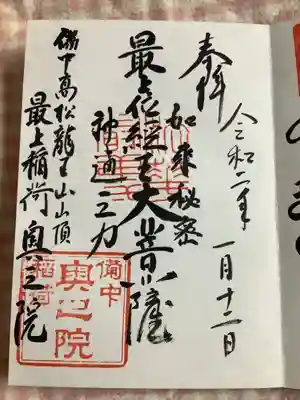 奉拝
令和二年一月十二日
如来秘密
最上位経王大菩薩
神通之力
備中高松龍王山山頂
最上稲荷奥之院
備中
奥之院
稲荷